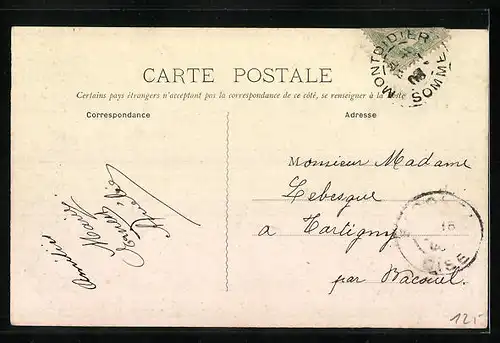 CARTE POSTALE
Certains pays étrangers n'acceptent pas la correspondance de ce côté, se renseigner à la Poste
Correspondance
Adresse
MONTDIDIER
SOMME
Monsieur Madame
Lebesgue
a Tartigny
par Bacouel.
OISE
12,-